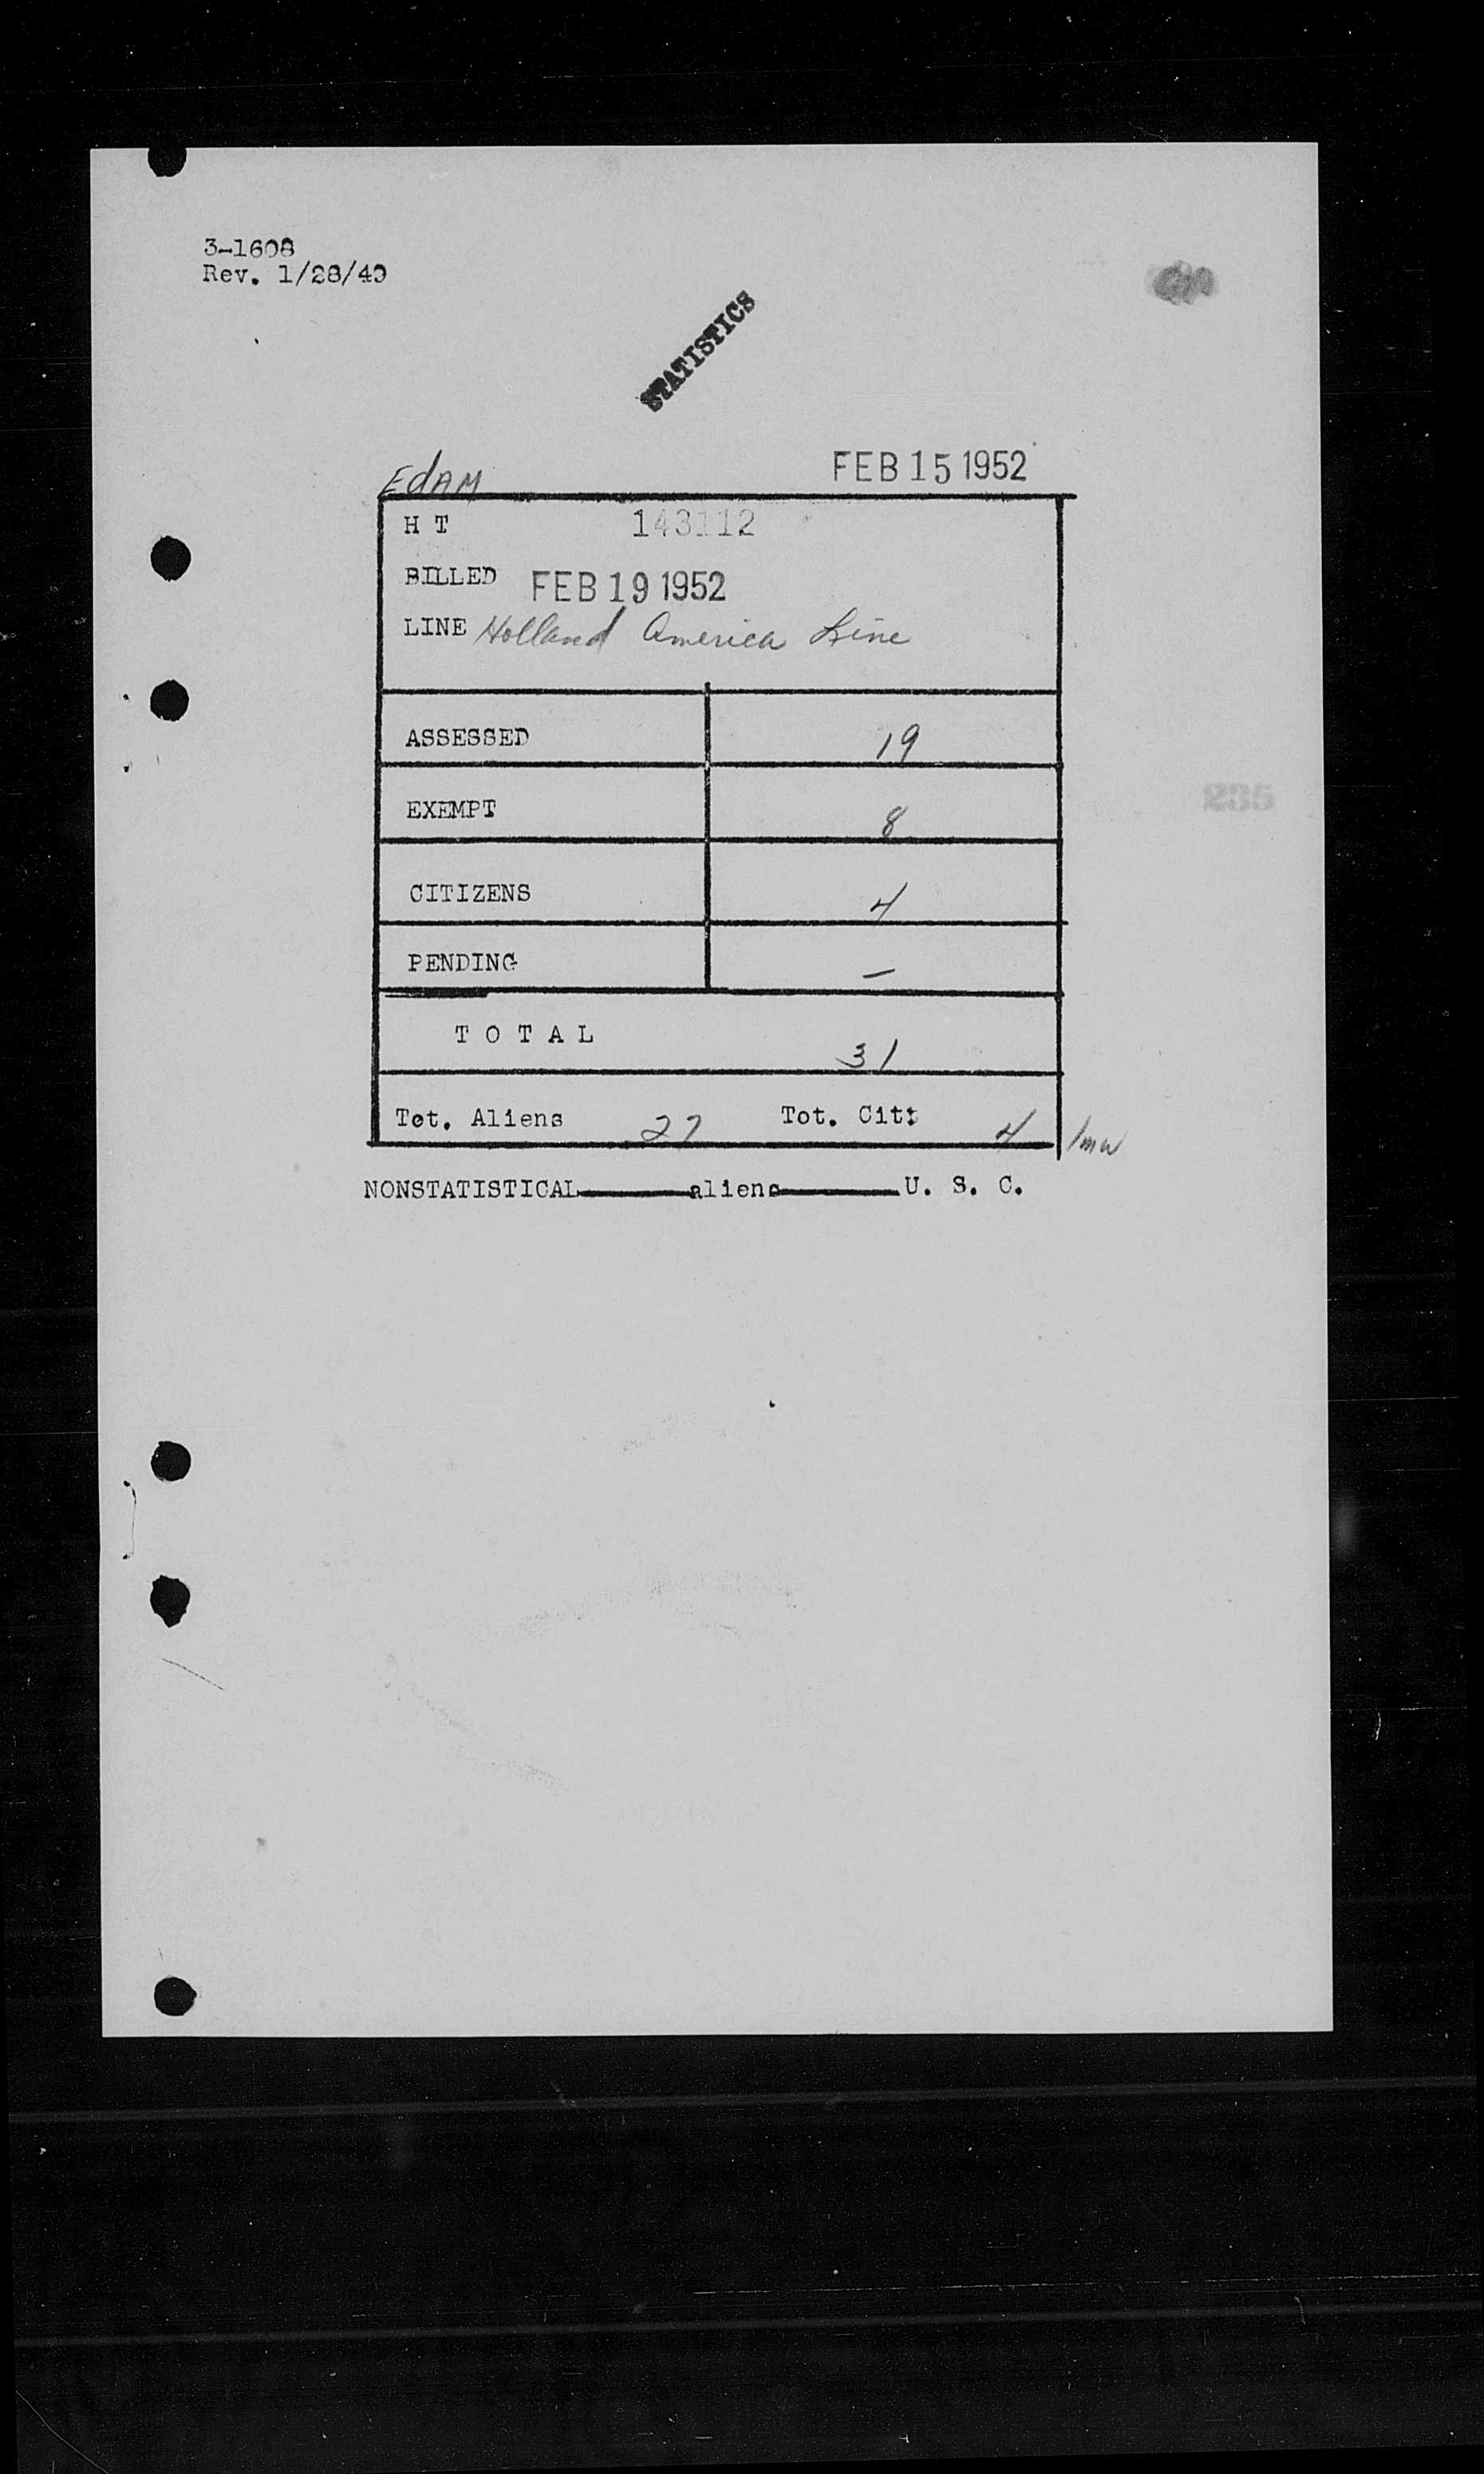 3-1608
Rev. 1/28/49
STATISTICS
EDAM FEB 15 1952
H T 143112
BILLED FEB 19 1952
LINE Holland America Line
ASSESSED 19
EXEMPT 8
CITIZENS 4
235
PENDING –
T O T A L 31
Tot. Aliens 27 Tot. Cit: 4
NONSTATISTICAL aliens U. S. C.